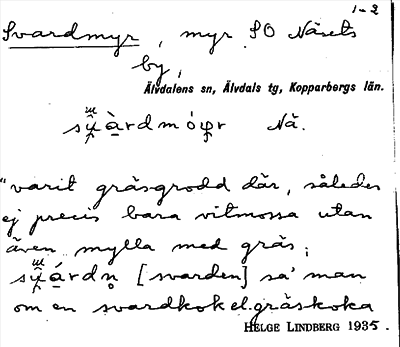 1-2
Svardmyr, myr SO Näsets
by,
Älvdalens sn, Älvdals tg, Kopparbergs län.
Nä.
"varit gräsgrodd där, således
ej precis bara vitmossa utan
även mylla med gräs;
[svarden] sa' man
om en svardkok el. gräskoka
HELGE LINDBERG 1935.